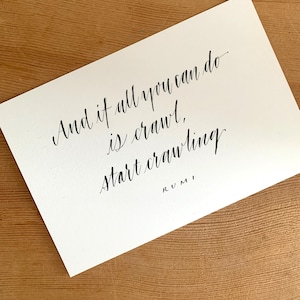 And if all you can do
is crawl,
start crawling
RUMI